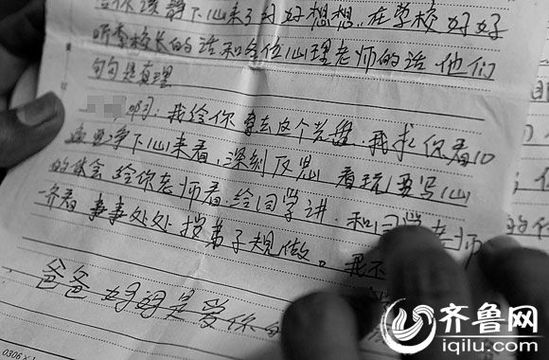 你该静下心来了好好想想,在学校好好
听李校长的话和各位心理老师的话,他们
句句是真理
啊:我给你拿去这个光盘,我求你看10
遍要静下心来看,深刻反思 看玩要写心
的体会给你老师看.给同学讲.和同学老师
一齐看 事事处处按弟子规做。我不
爸爸妈妈是爱你
0306
齐鲁网
iqilu.com